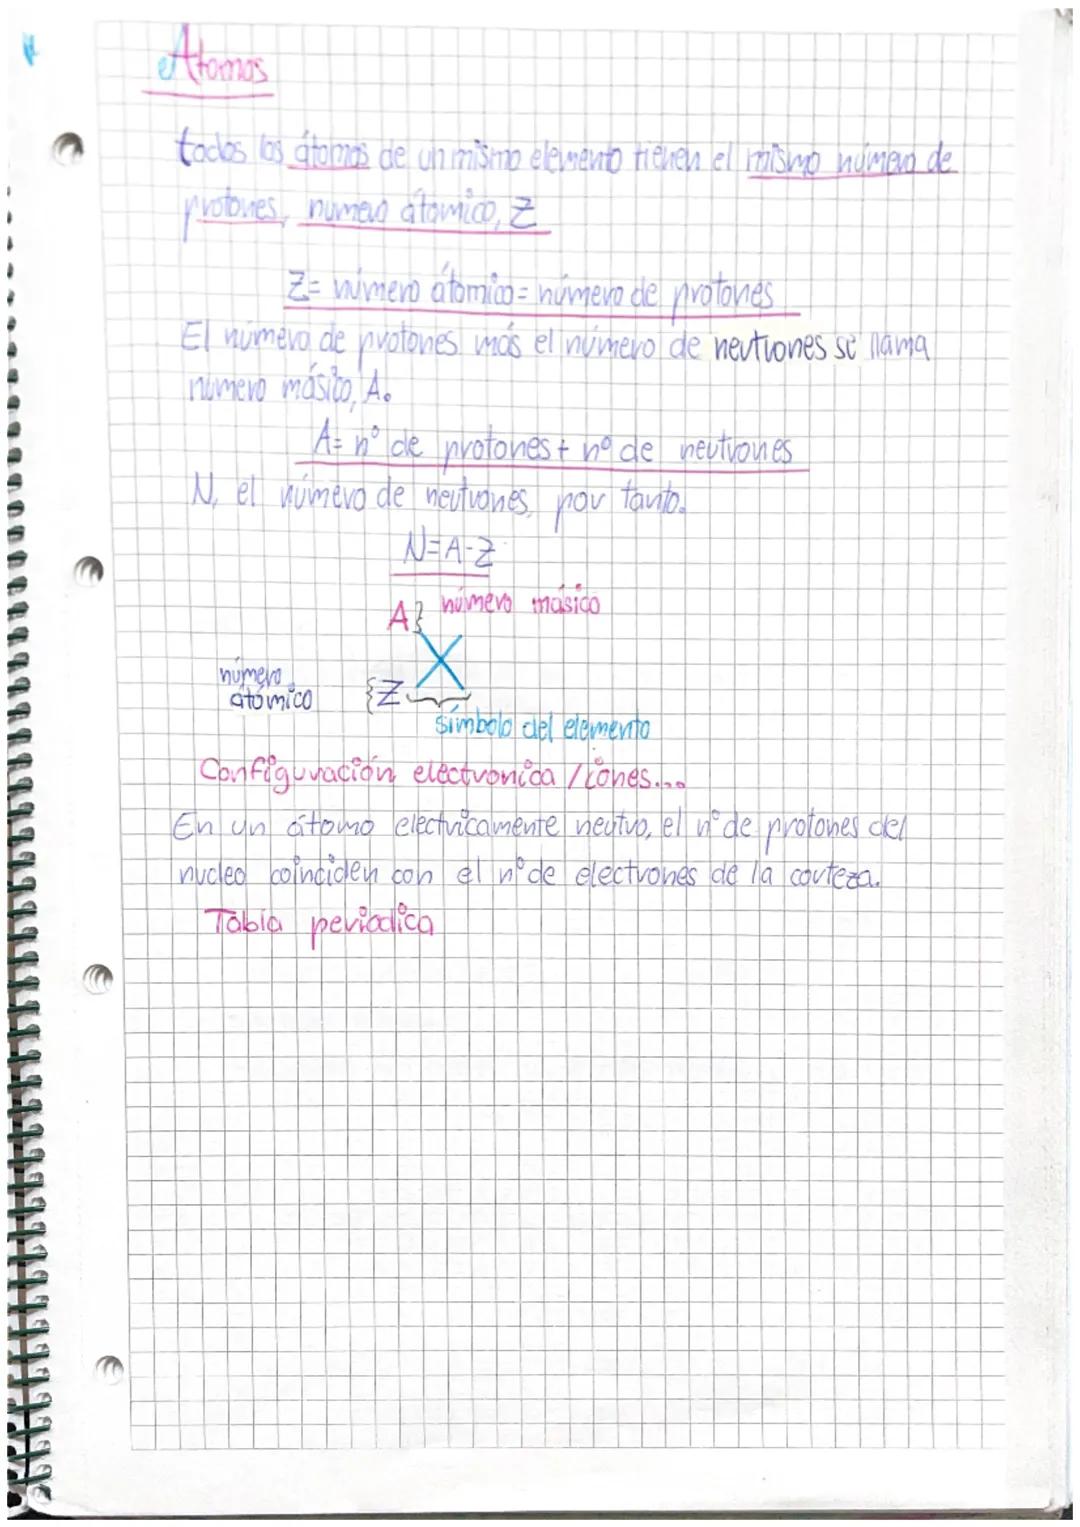 Atomos
todos los átomos de un mismo elemento tienen el mismo número de
protones, numero átomico, Z
Z= número átomico= número de protones
El número de protones más el número de neutrones se llama
número másico, A.
A= nº de protones + nº de neutrones
N, el número de neutrones, por tanto.
N=A-Z
A} número másico
X
número
átómico {Z
símbolo del elemento
Configuración electronica / iones...
En un átomo electricamente neutro, el nº de protones del
nucleo coinciden con el nº de electrones de la corteza.
Tabla periodica